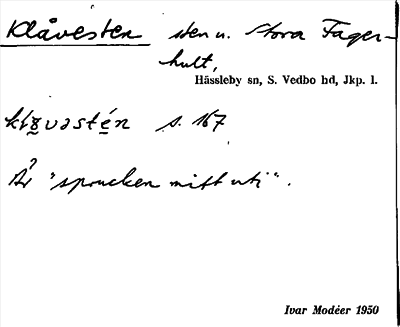 Klåvesten sten u. Stora Fager-
hult,
Hässleby sn, S. Vedbo hd, Jkp. l.
s. 167
Är "sprucken mitt uti".
Ivar Modéer 1950